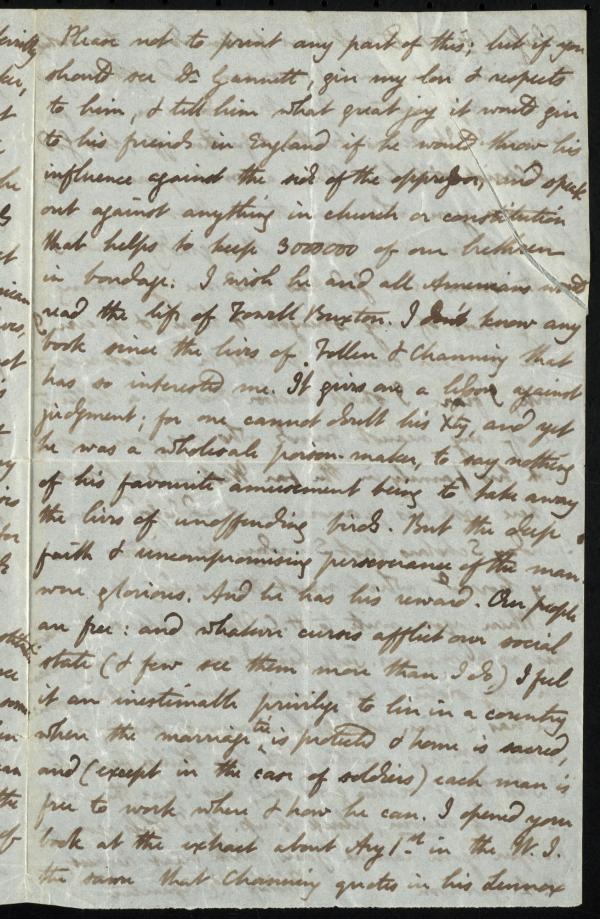 Please not to print any part of this; but if you
should see Dr Gannett, give my love & respects
to him, & tell him what great joy it would give
to his friends in England if he would throw his
influence against the side of the oppressor, and speak
out against anything in church or constitution
that helps to keep 3000000 of our brethren
in bondage. I wish he and all Americans would
read the life of Fowell Buxton. I don't know any
book since the lives of Follen & Channing that
has so interested me. It gives one a against
judgment; for one cannot doubt his Xty, and yet
he was a wholesale poison-maker, to say nothing
of his favourite amusement being to take away
the lives of unoffending birds. But the deep
faith & uncompromising perseverance of the man
were glorious. And he has his reward. Our people
are free: and whatever curses afflict our social
state (& few see them more than I do) I feel
it an inestimable privilege to live in a country
where the marriage tie is protected & home is sacred,
and (except in the case of soldiers) each man is
free to work where & how he can. I opened your
book at the extract about Aug 1st in the W. I.
the same that Channing quotes in his Lennox